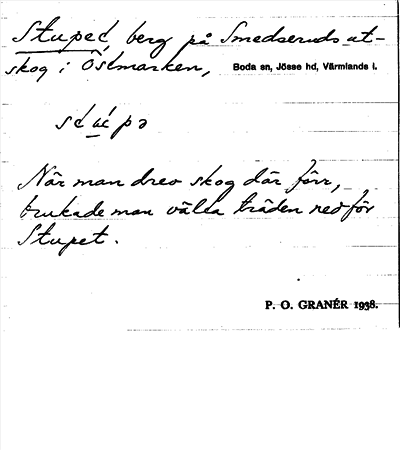 Stupet, berg på Smedseruds ut-
skog i Östmarken, Boda sn, Jösse hd, Värmlands l.
stúpə
När man drev skog där förr,
brukade man välta träden nedför
Stupet.
P. O. GRANÉR 1938.